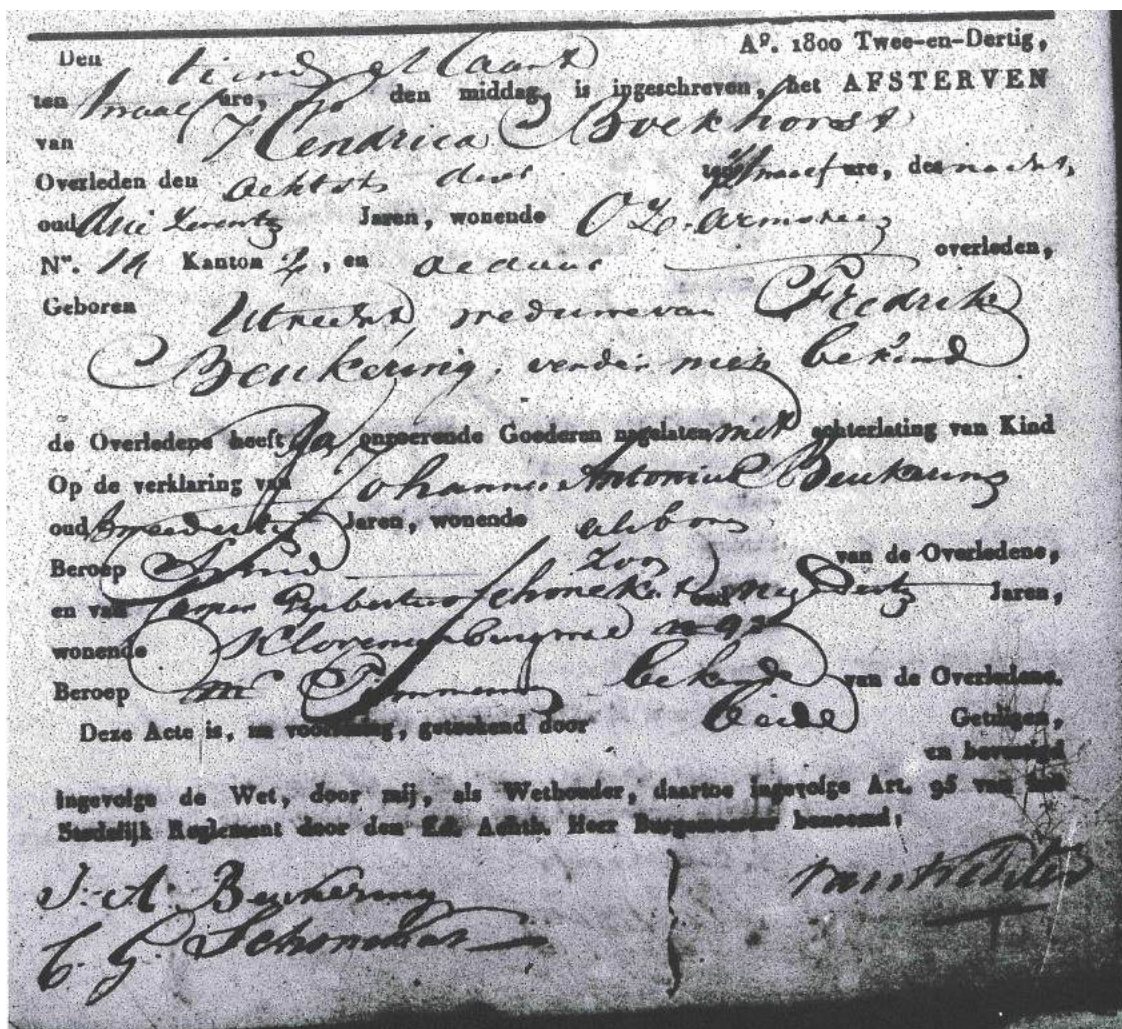 Den tiende Maart Aº. 1800 Twee-en-Dertig,
ten twaalf ure, op den middag, is ingeschreven, het AFSTERVEN
van Hendrica Boekhorst
Overleden den achtste dezer ten twaalf ure, des nachts,
oud drie zeventig Jaren, wonende O Z. Armsteeg
Nº. 14 Kanton 2, en aldaar overleden,
Geboren Utrecht weduwe van Fredrik
Beukering, verder niet bekend
de Overledene heeft onroerende Goederen nagelaten met achterlating van Kind
Op de verklaring van Johannes Antonius Beukering
oud Jaren, wonende als boven
Beroep Smid Zoon van de Overledene,
en van Casper Schoneka oud negen dertig Jaren,
wonende Kloveniersburgwal nº 92
Beroep Mr Timmerman bekende van de Overledene.
Deze Acte is, na voorlezing, geteekend door beide Getuigen,
en bevestigd
ingevolge de Wet, door mij, als Wethouder, daartoe ingevolge Art. 95 van het
Stedelijk Reglement door den Ed. Achtb. Heer Burgemeester benoemd;
J. A. Beukering
C. G. Schoneka